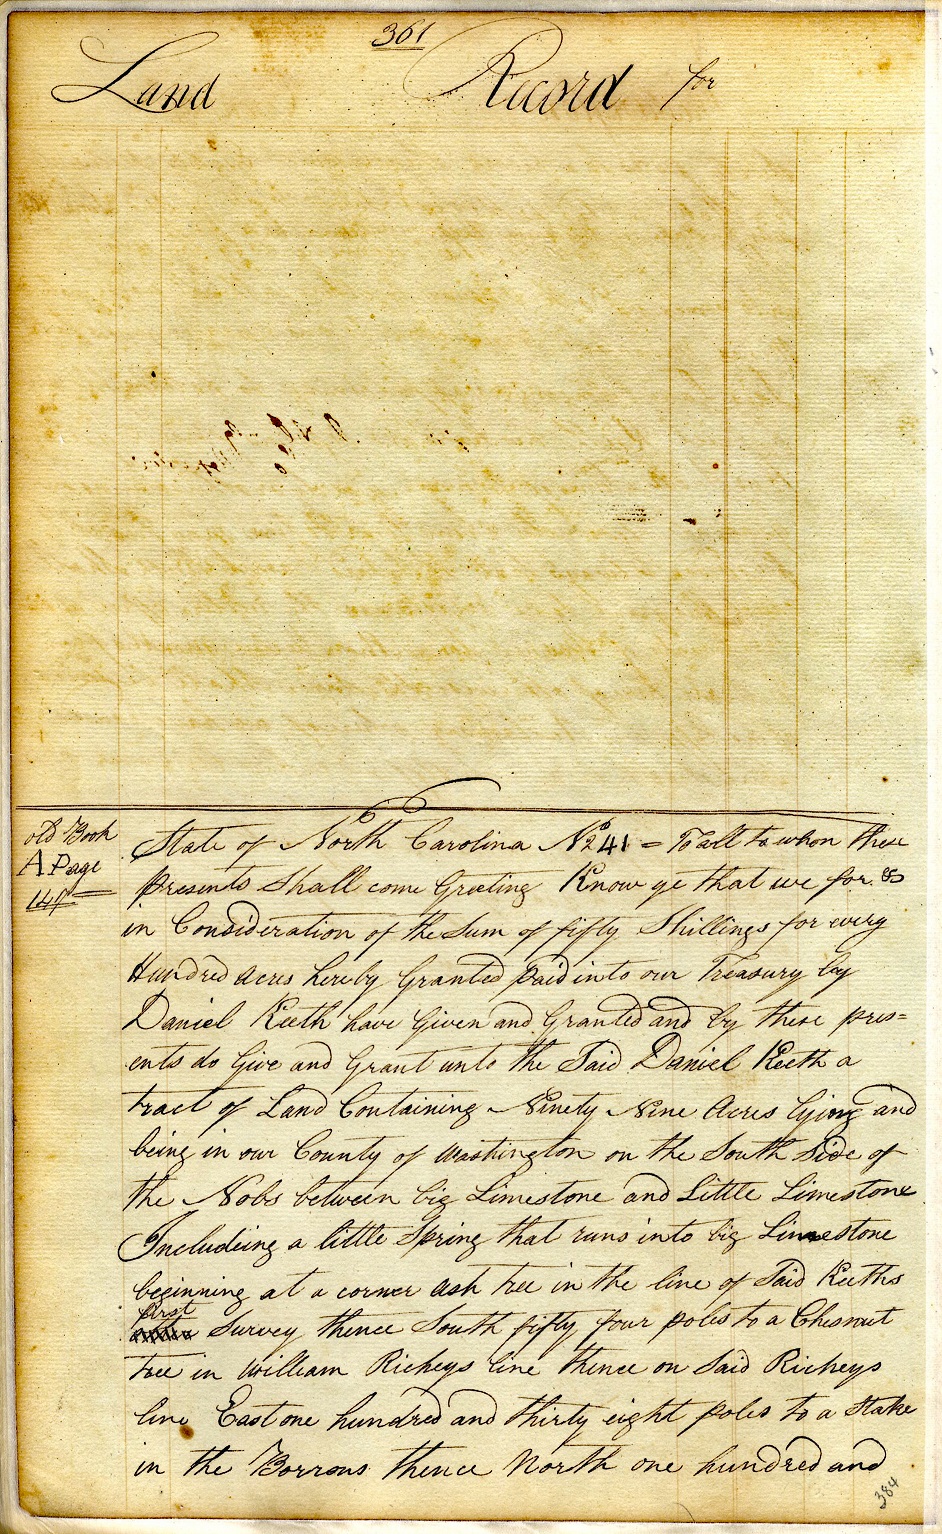 361
Land Record for
old Book
A Page
147
State of North Carolina No 241 = To all to whom these
presents Shall come Greeting Know ye that we for &
in Consideration of the Sum of fifty Shillings for every
Hundred acres hereby Granted paid into our Treasury by
Daniel Keeth have Given and Granted and by these pres=
ents do Give and Grant unto the Said Daniel Keeth a
tract of Land Containing Ninety Nine Acres lying and
being in our County of Washington on the South Side of
the Nobs between big Limestone and Little Limestone
Includeing a little Spring that runs into big Limestone
beginning at a corner ash tree in the line of Said Keeths
first
Survey thence South fifty four poles to a Chesnut
tree in William Richeys line thence on Said Richeys
line East one hundred and thirty eight poles to a Stake
in the Borrons thence North one hundred and
384